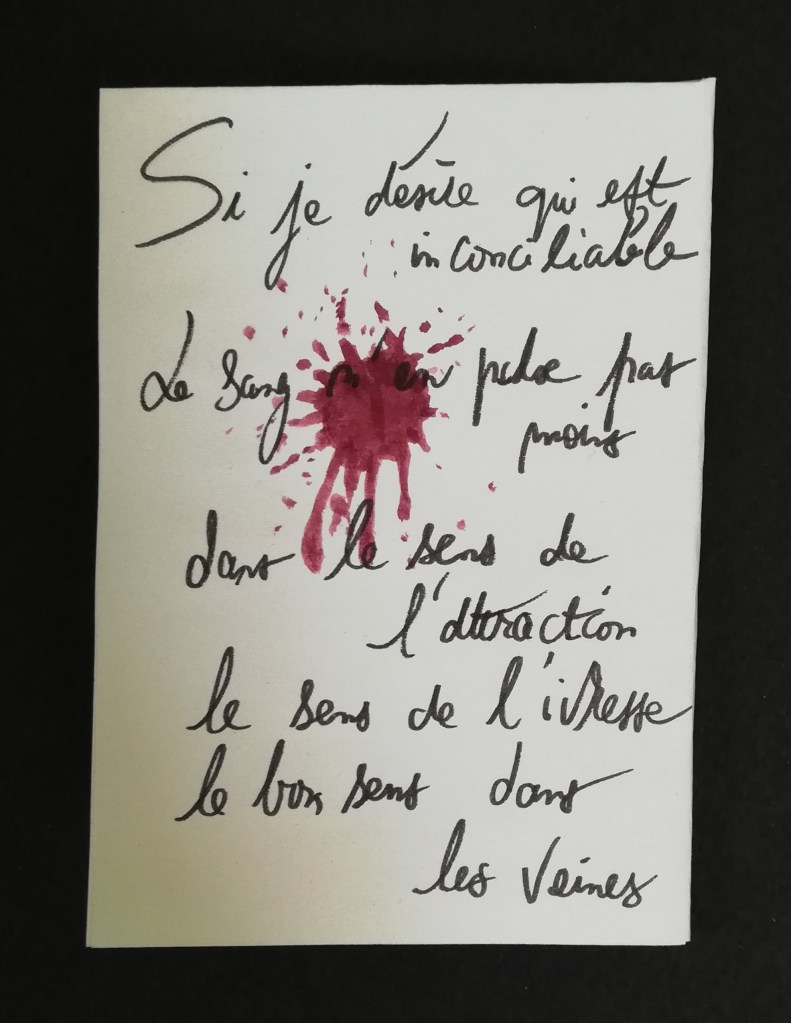 Si je désire qui est
inconciliable
Le sang n'en pulse pas
moins
dans le sens de
l'attraction
le sens de l'ivresse
le bon sens dans
les veines